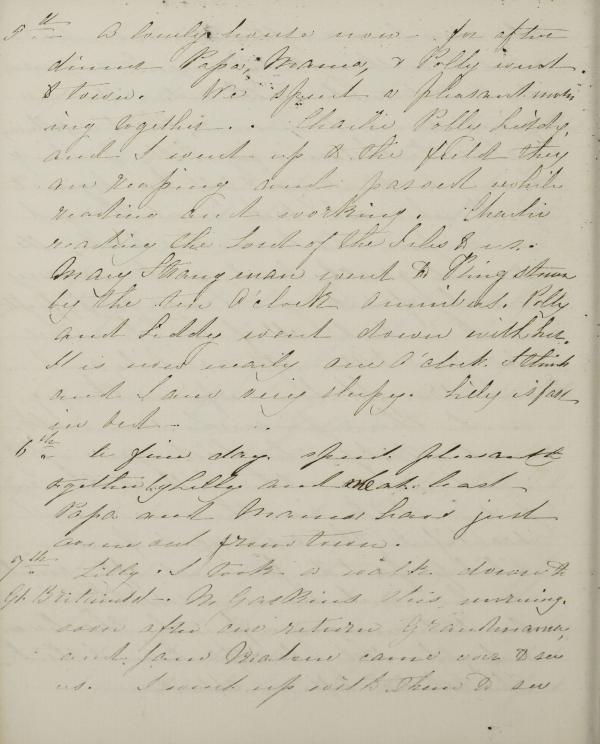 5th A lonely house now for after
dinner Papa, Mama, & Polly went
to town. We spent a pleasant morn
ing together. Charlie Polly
and I went up to the field they
are reaping and passed while
reading and working. Charlie
reading the Lord of the Isles to us.
Mary Strangman went to Kingstown
by the ten o'clock omnibus. Polly
and Liddy went down with her.
It is now nearly one o'clock I think
and I am very sleepy. Lilly is fast
in bed
6th A fine day. spent pleasantly
together by Lilly and me at least
Papa and Mama have just
come out from town.
7th Lilly & I took a walk down to
Gaskins this morning.
soon after our return Grandmama,
and Jane came over to see
us. I went up with them to see